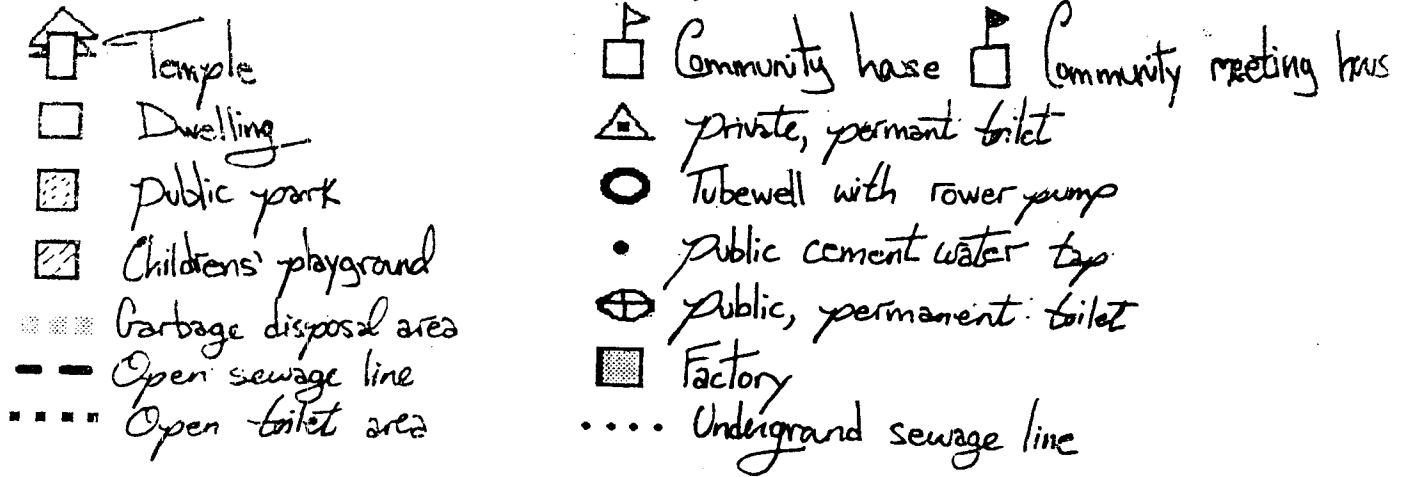 Temple
Dwelling
Public park
Childrens' playground
Garbage disposal area
Open sewage line
Open toilet area
Community house
Community meeting hous
private, permant toilet
Tubewell with rower pump
public cement water tap
public, permanent toilet
Factory
Undergrand sewage line